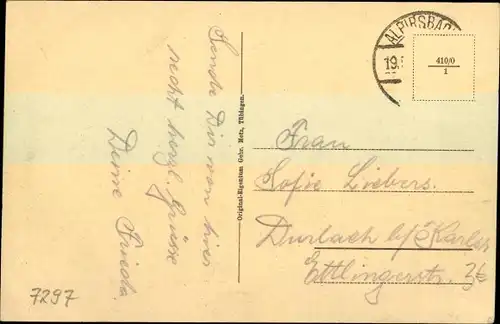 Sende Dir von hier
recht herzl. Grüsse
Deine Frieda.
Original-Eigentum Gebr. Metz, Tübingen.
ALPIRSBACH
19.
410/0
1
Frau
Sofie Liebers.
Durlach b/ Karlsr
Ettlingerstr.
7297